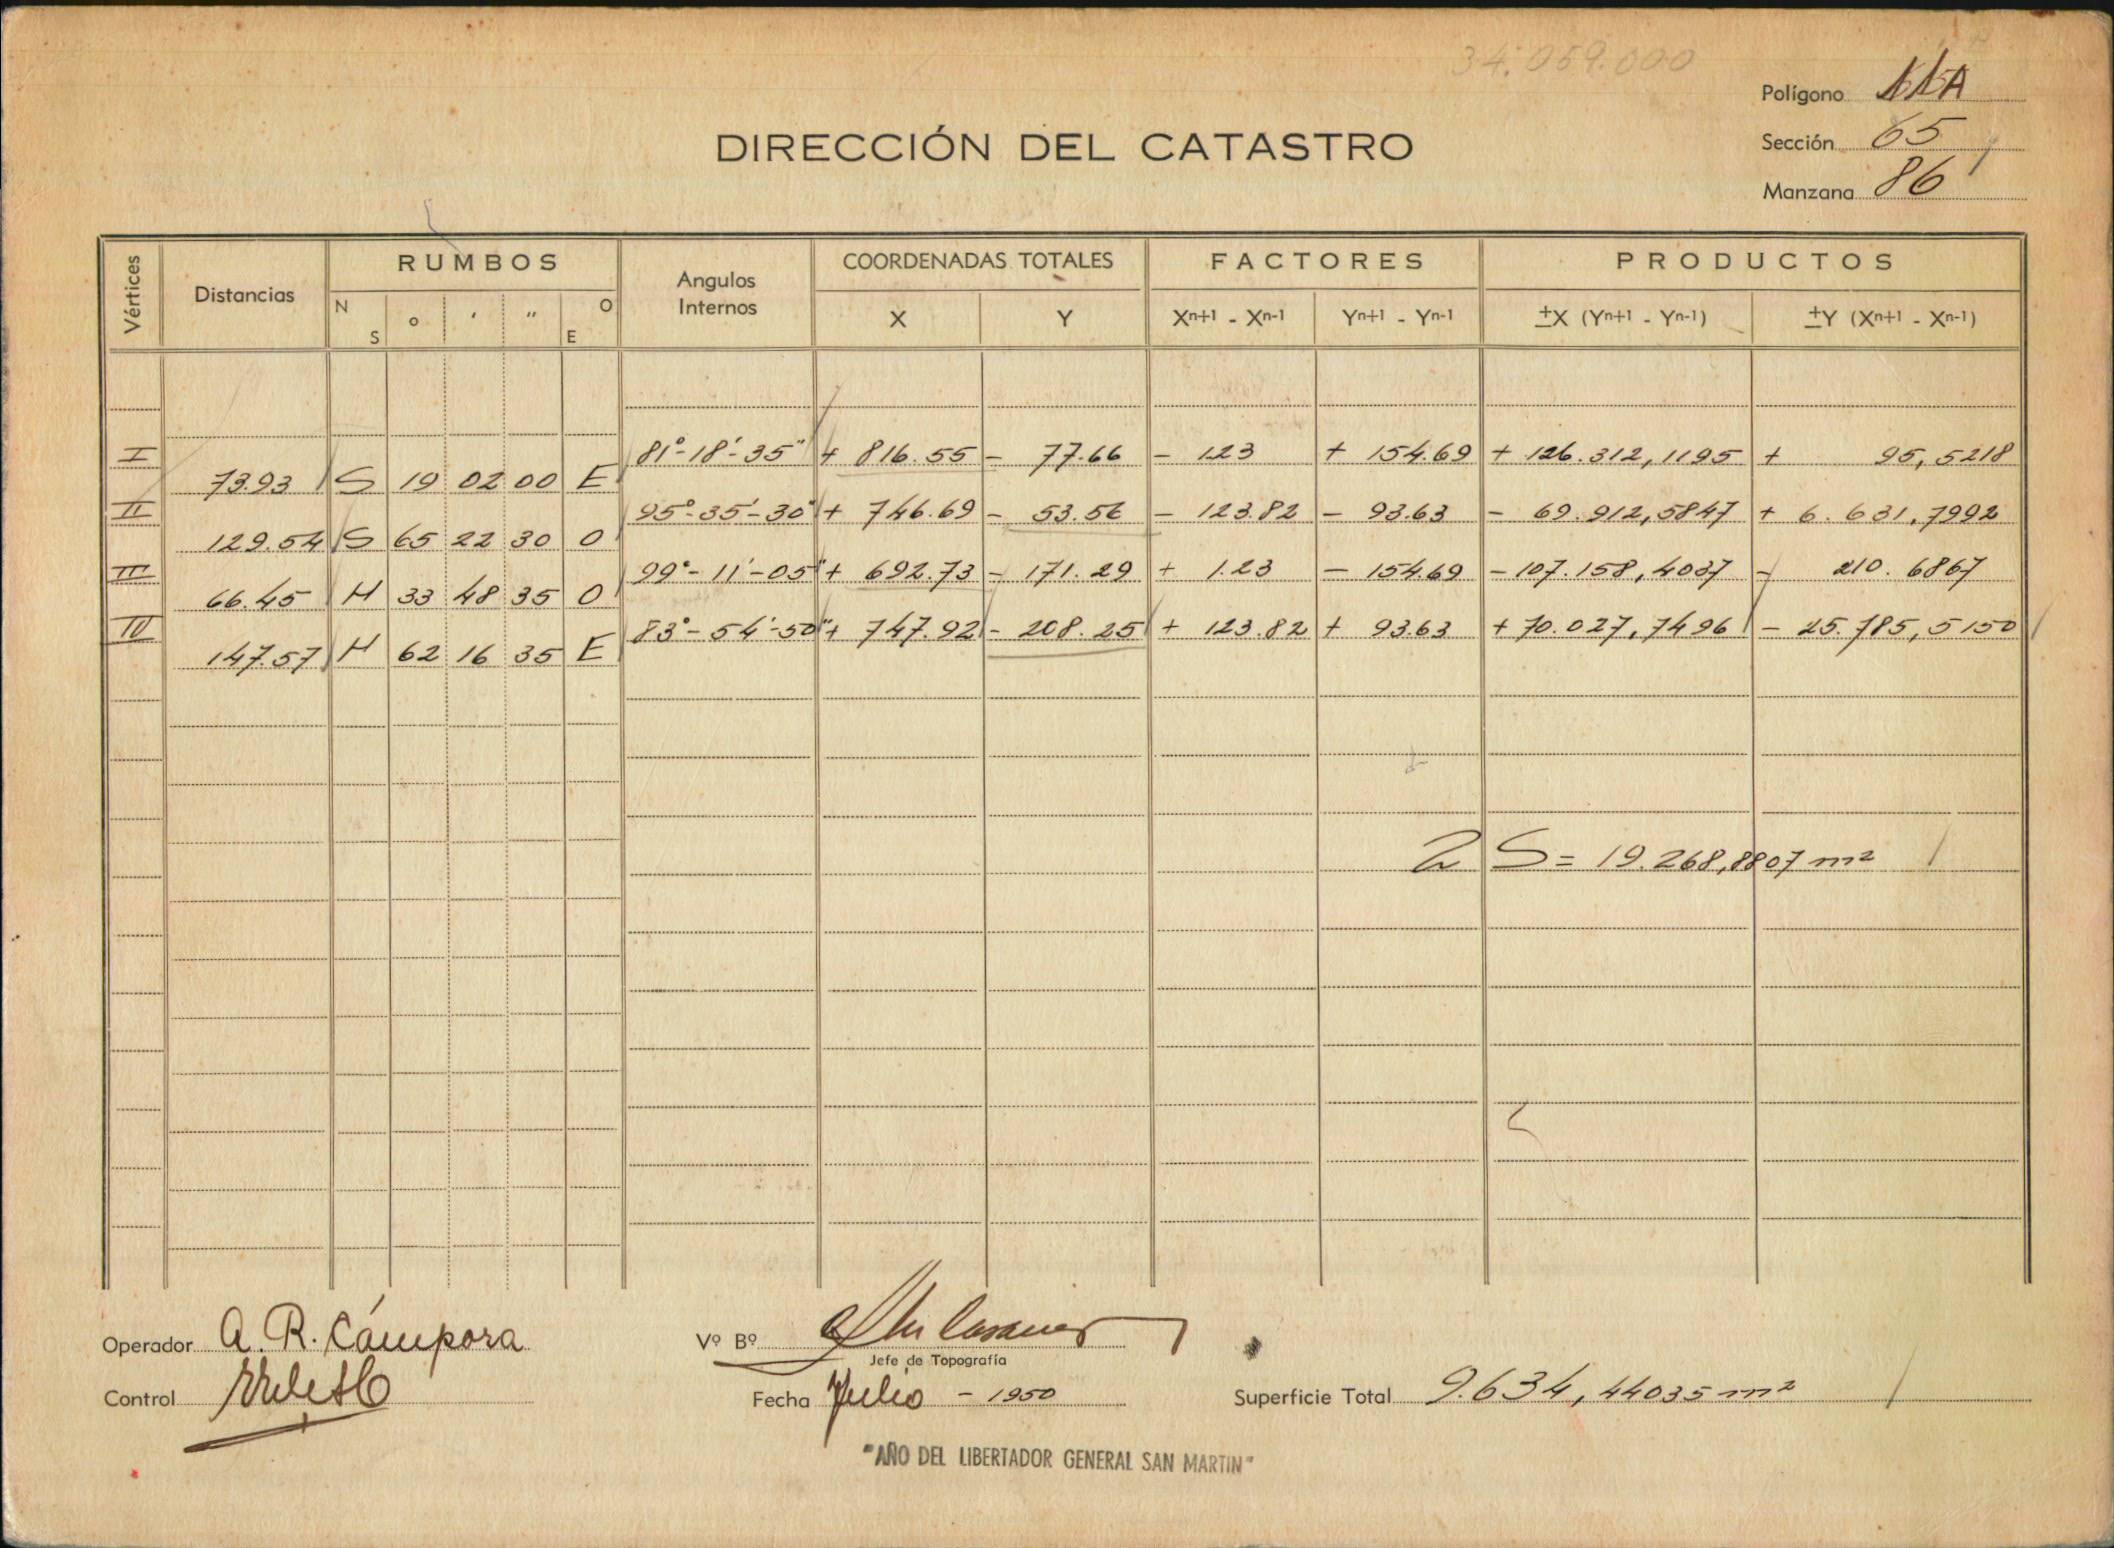 34.059.000
Polígono
DIRECCIÓN DEL CATASTRO
Sección 65
Manzana 86
Vértices Distancias RUMBOS Angulos Internos COORDENADAS TOTALES FACTORES PRODUCTOS
N S o ' " O E X Y Xn+1 - Xn-1 Yn+1 - Yn-1 ±X (Yn+1 - Yn-1) ±Y (Xn+1 - Xn-1)
I 81°-18'-35" + 816.55 - 77.66 - 1.23 + 154.69 + 126.312,1195 + 95,5218
73.93 S 19 02 00 E
II 95°-35'-30" + 746.69 - 53.56 - 123.82 - 93.63 - 69.912,5847 + 6.631,7992
129.54 S 65 22 30 O
III 99°-11'-05" + 692.73 - 171.29 + 1.23 - 154.69 - 107.158,4037 - 210.6867
66.45 N 33 48 35 O
IV 83°-54'-50" + 747.92 - 208.25 + 123.82 + 93.63 + 70.027,7496 - 25.785,5150
147.57 N 62 16 35 E
2 S = 19.268,8807 m²
Operador A. R. Cámpora
Vº Bº
Jefe de Topografía
Control
Fecha Julio - 1950
Superficie Total 9.634,44035 m²
"AÑO DEL LIBERTADOR GENERAL SAN MARTIN"